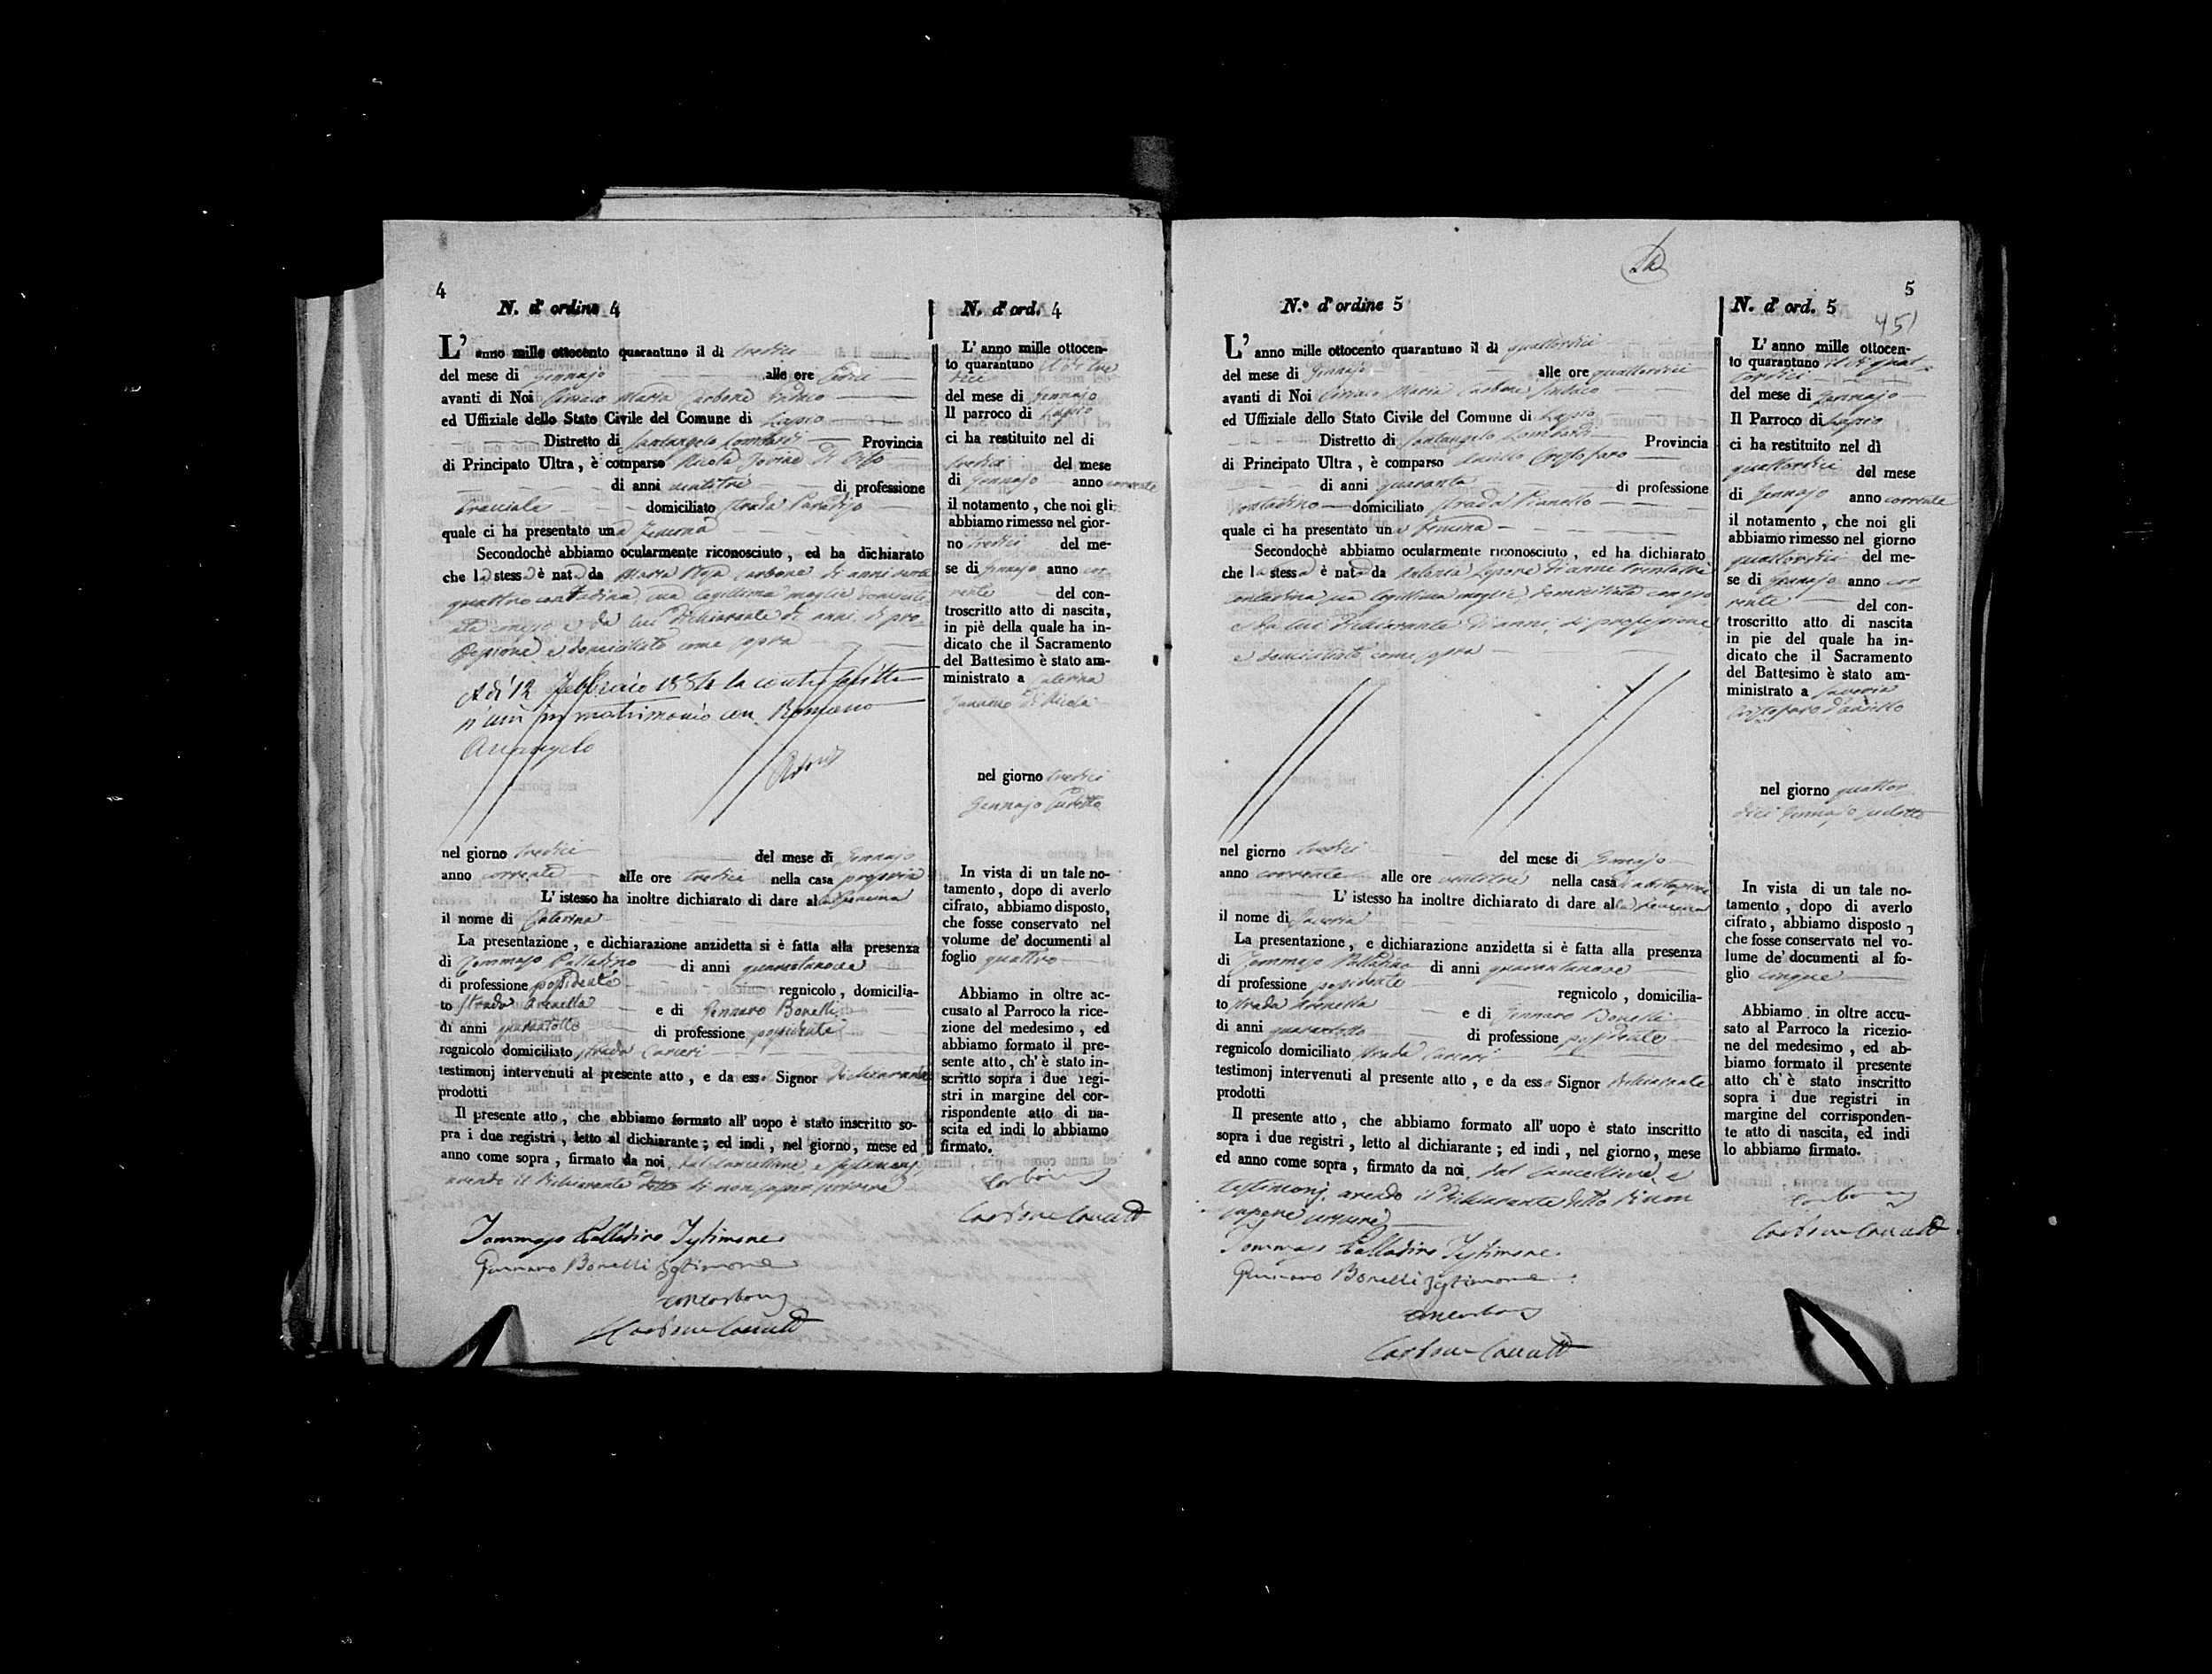 4
N. d' ordine 4
L' anno mille ottocento quarantuno il dì tredici
del mese di Gennajo alle ore sedici
avanti di Noi Maria Carbone Sindaco
ed Uffiziale dello Stato Civile del Comune di Lapio
Distretto di Santangelo Lombardi Provincia
di Principato Ultra, è comparso Nicola di Vito
di anni ventitrè di professione
bracciale domiciliato strada Paradiso
quale ci ha presentato una femina
Secondochè abbiamo ocularmente riconosciuto, ed ha dichiarato
che la stessa è nata da Maria Rosa Carbone di anni venti
quattro contadina, sua legittima moglie domicili
ata con esso e da lui dichiarante di anni, di pro
fessione e domiciliato come sopra
A dì 12 Febbraio 1884 la controscritta
si unì in matrimonio con Romano
Arcangelo
nel giorno tredici del mese di Gennajo
anno corrente alle ore tredici nella casa propria
L' istesso ha inoltre dichiarato di dare alla femina
il nome di Caterina
La presentazione, e dichiarazione anzidetta si è fatta alla presenza
di Tommaso Palladino di anni quarantanove
di professione possidente regnicolo, domicilia-
to strada Arenella e di Gennaro Bonelli
di anni quarantotto di professione possidente
regnicolo domiciliato strada Carceri
testimonj intervenuti al presente atto, e da esso Signor dichiarante
prodotti
Il presente atto, che abbiamo formato all' uopo è stato inscritto so-
pra i due registri, letto al dichiarante; ed indi, nel giorno, mese ed
anno come sopra, firmato da noi, dal Cancelliere, e testimonj
avendo il dichiarante detto di non saper scrivere
Tommaso Palladino Testimone
Gennaro Bonelli Testimone
Carbone
N. d' ord. 4
L' anno mille ottocen-
to quarantuno il dì tre
dici
del mese di Gennajo
Il parroco di Lapio
ci ha restituito nel dì
tredici del mese
di Gennajo anno corrente
il notamento, che noi gli
abbiamo rimesso nel gior-
no tredici del me-
se di Gennajo anno cor
rente del con-
troscritto atto di nascita,
in piè della quale ha in-
dicato che il Sacramento
del Battesimo è stato am-
ministrato a Caterina
di Nicola
nel giorno tredici
Gennajo sudetto
In vista di un tale no-
tamento, dopo di averlo
cifrato, abbiamo disposto,
che fosse conservato nel
volume de' documenti al
foglio quattro
Abbiamo in oltre ac-
cusato al Parroco la rice-
zione del medesimo, ed
abbiamo formato il pre-
sente atto, ch' è stato in-
scritto sopra i due regi-
stri in margine del cor-
rispondente atto di na-
scita ed indi lo abbiamo
firmato.
Carbone
5
451
N.° d' ordine 5
L' anno mille ottocento quarantuno il dì quattordici
del mese di Gennajo alle ore quattordici
avanti di Noi Maria Carbone Sindaco
ed Uffiziale dello Stato Civile del Comune di Lapio
Distretto di Santangelo Lombardi Provincia
di Principato Ultra, è comparso Aniello Cristofaro
di anni quaranta di professione
contadino domiciliato strada Pianello
quale ci ha presentato una femina
Secondochè abbiamo ocularmente riconosciuto, ed ha dichiarato
che la stessa è nata da Antonia Lepore di anni trentatrè
contadina sua legittima moglie, domiciliata con esso
e da lui dichiarante di anni, di professione
e domiciliato come sopra
nel giorno tredici del mese di Gennajo
anno corrente alle ore ventitrè nella casa d'abitazione
L' istesso ha inoltre dichiarato di dare alla femina
il nome di Saveria
La presentazione, e dichiarazione anzidetta si è fatta alla presenza
di Tommaso Palladino di anni quarantanove
di professione possidente regnicolo, domicilia-
to strada Arenella e di Gennaro Bonelli
di anni quarantotto di professione possidente
regnicolo domiciliato strada Carceri
testimonj intervenuti al presente atto, e da esso Signor dichiarante
prodotti
Il presente atto, che abbiamo formato all' uopo è stato inscritto
sopra i due registri, letto al dichiarante; ed indi, nel giorno, mese
ed anno come sopra, firmato da noi, dal Cancelliere, e
testimonj, avendo il dichiarante detto di non
sapere scrivere
Tommaso Palladino Testimone
Gennaro Bonelli Testimone
Carbone
N. d' ord. 5
L' anno mille ottocen-
to quarantuno il dì quat
tordici
del mese di Gennajo
Il Parroco di Lapio
ci ha restituito nel dì
quattordici del mese
di Gennajo anno corrente
il notamento, che noi gli
abbiamo rimesso nel giorno
quattordici del me-
se di Gennajo anno cor
rente del con-
troscritto atto di nascita
in pie del quale ha in-
dicato che il Sacramento
del Battesimo è stato am-
ministrato a Saveria
Cristofaro d'Aniello
nel giorno quattor
dici Gennajo sudetto
In vista di un tale no-
tamento, dopo di averlo
cifrato, abbiamo disposto,
che fosse conservato nel vo-
lume de' documenti al fo-
glio cinque
Abbiamo in oltre accu-
sato al Parroco la ricezio-
ne del medesimo, ed ab-
biamo formato il presente
atto ch' è stato inscritto
sopra i due registri in
margine del corrisponden-
te atto di nascita, ed indi
lo abbiamo firmato.
Carbone